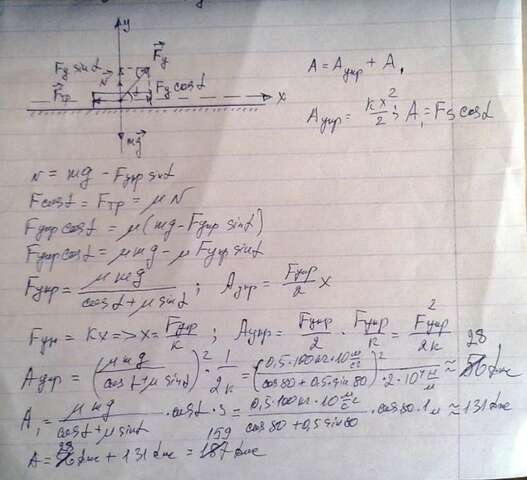 y
Fy sinα
F⃗y
N⃗
F⃗тр
Fy cosα
α
x
mg⃗
A = Aупр + A₁
Aупр = kx²/2; A₁ = FS cosα
N = mg - Fупр sinα
F cosα = Fтр = μN
Fупр cosα = μ(mg - Fупр sinα)
Fупр cosα = μmg - μ Fупр sinα
Fупр = μmg/(cosα + μ sinα); Aупр = Fупр/2 x
Fун = kx => x = Fупр/k; Aупр = Fупр/2 · Fупр/k = F²упр/2k
Aупр = (μmg/(cosα + μ sinα))² · 1/2k = (0,5·100кг·10 м/с²/(cos80 + 0,5·sin80))² / 2·10⁴ н/м ≈ 28 дж
A₁ = μmg/(cosα + μ sinα) · cosα · s = 0,5·100кг·10 м/с²/(cos80 + 0,5 sin80) · cos80·1м ≈ 131 дж
A = 28 дж + 131 дж = 159 дж